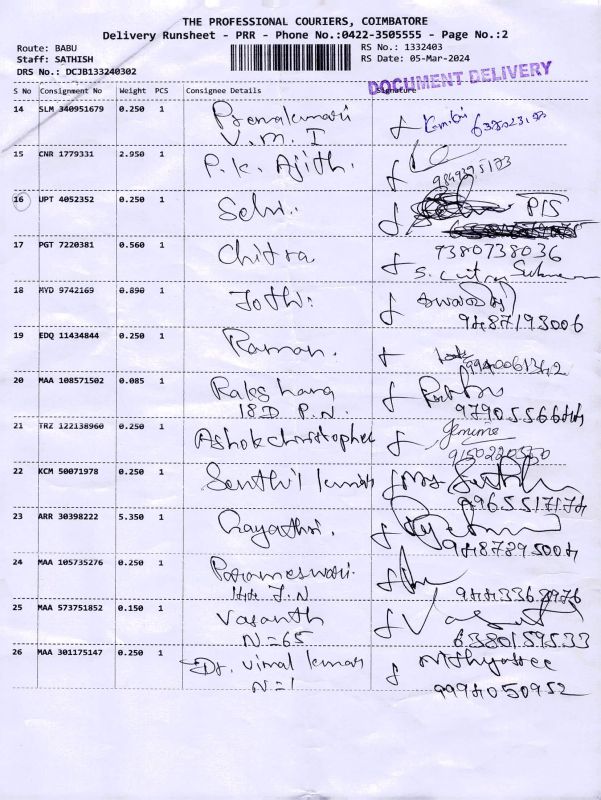 THE PROFESSIONAL COURIERS, COIMBATORE
Delivery Runsheet - PRR - Phone No.:0422-3505555 - Page No.:2
Route: BABU
Staff: SATHISH
DRS No.: DCJB133240302
RS No.: 1332403
RS Date: 05-Mar-2024
DOCUMENT DELIVERY
S No Consignment No Weight PCS Consignee Details Signature
14 SLM 340951679 0.250 1 Premakumari
V.M.I
15 CNR 1779331 2.950 1 P.K. Ajith.
16 UPT 4052352 0.250 1 Selvi.
17 PGT 7220381 0.560 1 Chitra 9380738036
18 MYD 9742169 0.890 1 Jothi.
9487193006
19 EDQ 11434844 0.250 1 Raman.
20 MAA 108571502 0.085 1
18 D P.N.
21 TRZ 122138960 0.250 1 Ashok christopher
22 KCM 50071978 0.250 1 Senthil kumar
9965517174
23 ARR 30398222 5.350 1 Gayathri.
9487895004
24 MAA 105735276 0.250 1 Parameswari.
44 J.N 9443368976
25 MAA 573751852 0.150 1 Vasanth
N=65 6380159533
26 MAA 301175147 0.250 1 Dr. Vimal kumar Nithyasree
N=1 9994050952